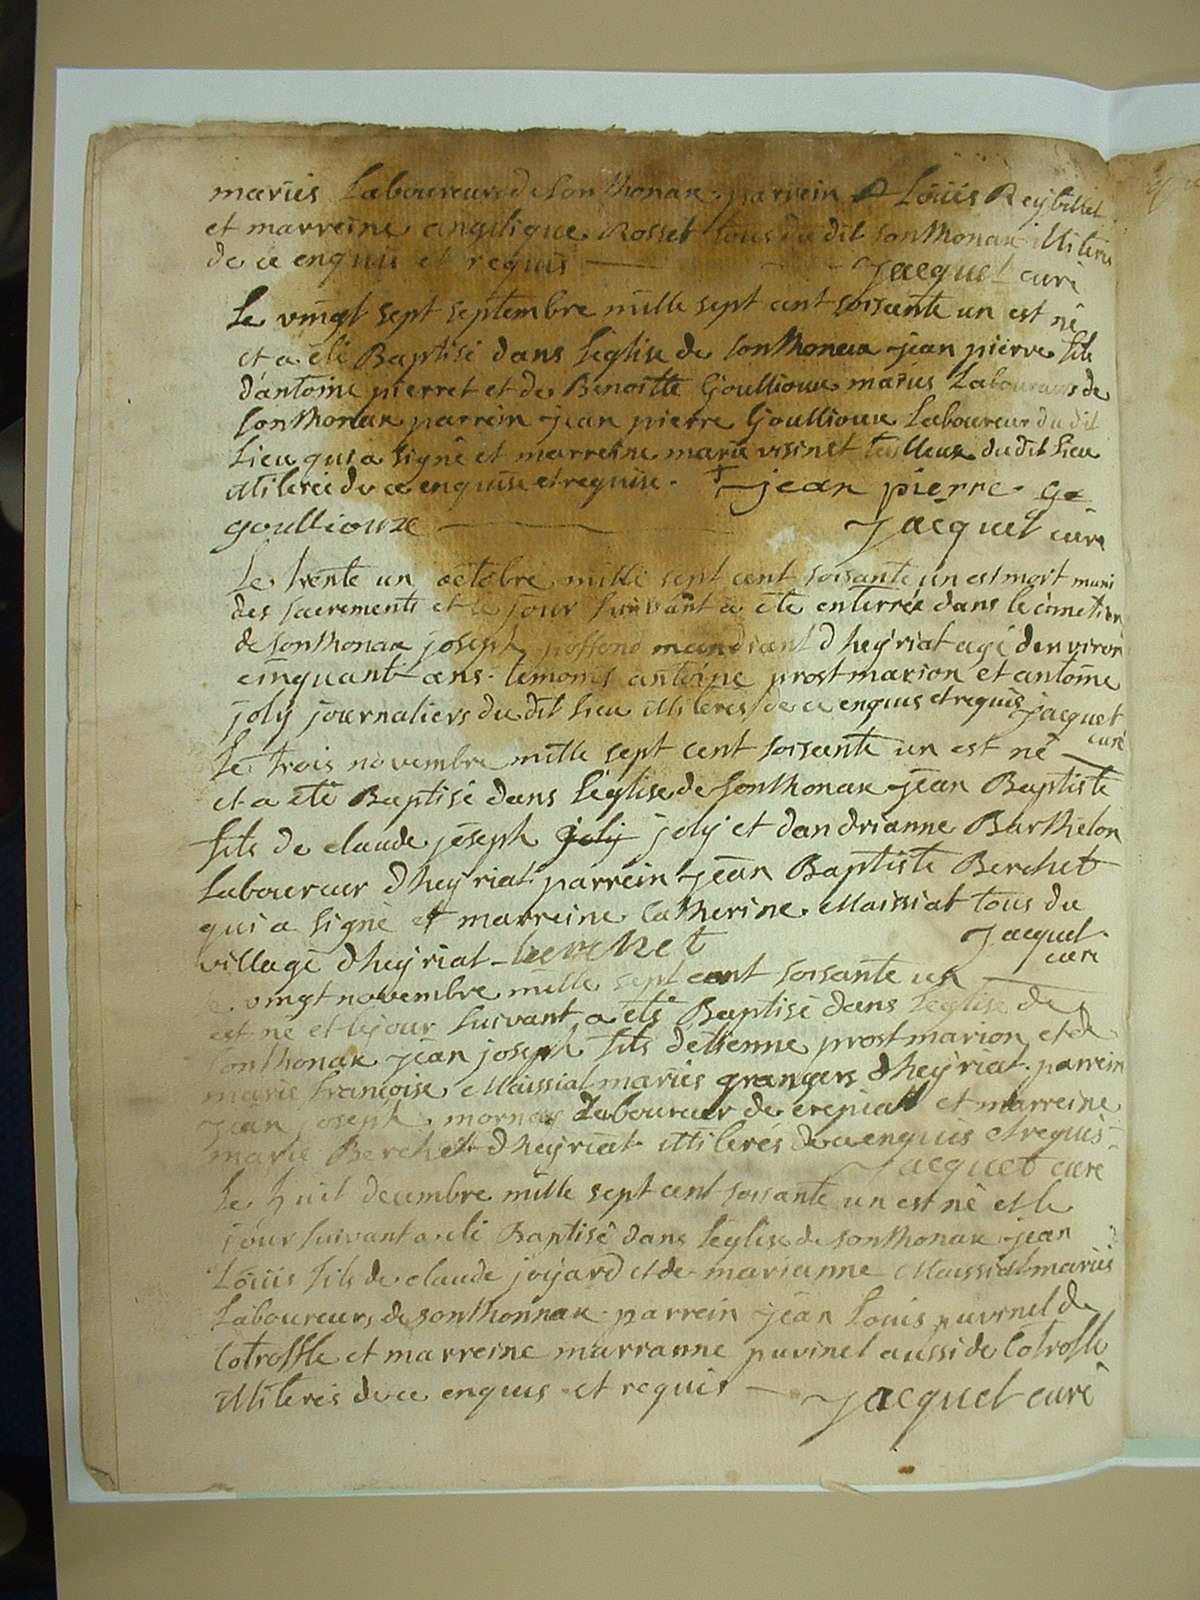 mariés Laboureurs de Sonthonax parrein Loüis Reybillet
et marreine angelique Rosset tous du dit Sonthonax illiterés
de ce enquis et requis Jacquet curé
Le vingt sept septembre mille sept cent soisante un est né
et a été Baptisé dans l'eglise de Sonthonax jean pierre fils
d'antoine pierret et de Benoitte Goullioux mariés Laboureurs de
Sonthonax parrein jean pierre Goullioux Laboureur du dit
Lieu qui a signé et marreine marie visinet du dit Lieu
illiterée de ce enquise et requise. jean pierre. go
goullioux Jacquet curé
Le trente un octobre mille sept cent soisante un est mort muni
des sacrements et le jour suivant a été enterrée dans le cimetiere
de Sonthonax joseph mandiant d'heyriat agé d'environ
cinquant ans. temoins antoine prost marion et antoine
joly journaliers du dit Lieu illiteres de ce enquis et requis Jacquet
curé
Le trois novembre mille sept cent soisante un est né
et a été Baptisé dans l'église de Sonthonax jean Baptiste
fils de claude joseph joly joly et d'andrianne Barthelon
Laboureur d'heyriat parrein jean Baptiste Berchet
qui a signé et marreine Catherine Maissiat tous du
village d'heyriat berchet Jacquet
curé
Le vingt novembre mille sept cent soisante un
est né et le jour suivant a été Baptisé dans l'eglise de
Sonthonax jean joseph fils d'etienne prost marion et de
marie françoise Maissiat mariés grangers d'heyriat. parrein
jean joseph Laboureur de crepiat et marreine
marie Berchet d'heyriat illiterés de ce enquis et requis
Jacquet curé
Le huit decembre mille sept cent soisante un est né et le
jour suivant a eté Baptisé dans l'église de Sonthonax jean
Loüis fils de claude joyard et de marianne Maissiat mariés
Laboureurs de Sonthonnax parrein jean Louis puvinel de
Cotroffle et marreine marranne puvinel aussi de Cotroffle
illiterés de ce enquis et requis Jacquet curé